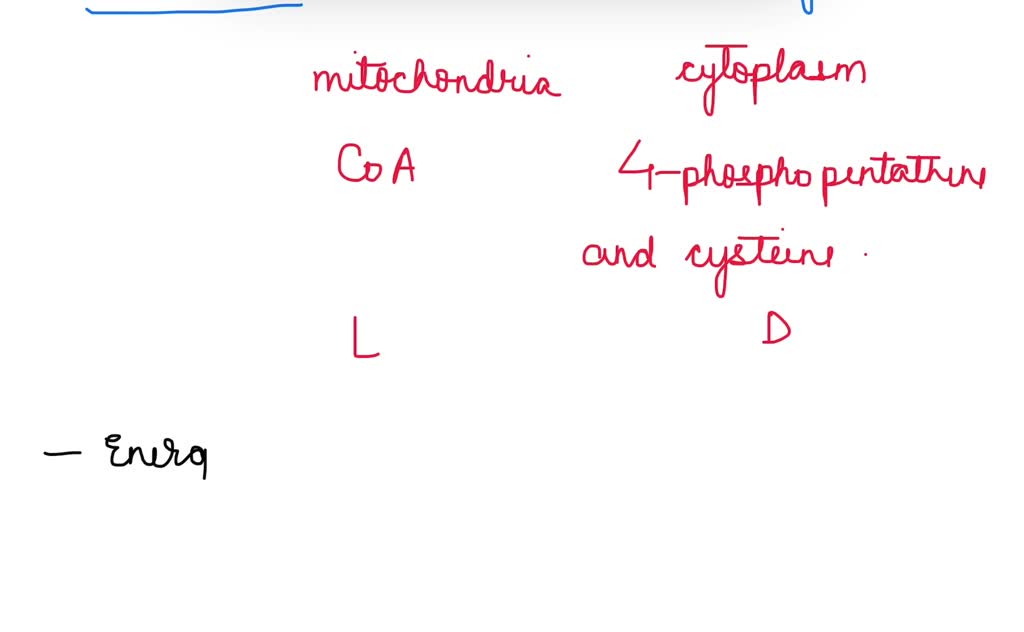 mitochondria cytoplasm
CoA 4-phosphopentathine
and cysteine.
L D
- Energ